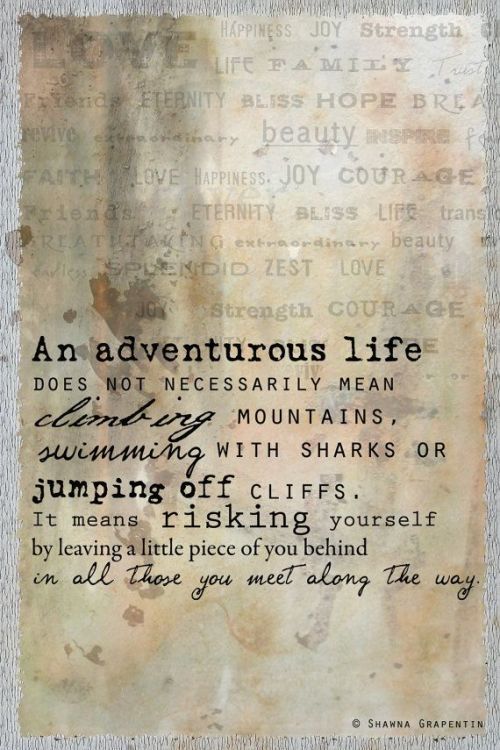 HAPPINESS JOY Strength
LOVE
LIFE FAMILY Trust
Friends ETERNITY BLISS HOPE BREA
revive extraordinary beauty INSPIRE
FAITH LOVE HAPPINESS. JOY COURAGE
Friends ETERNITY BLISS LIFE trans
BREATHTAKING extraordinary beauty
endless SPLENDID ZEST LOVE
JOY Strength COURAGE
An adventurous life
DOES NOT NECESSARILY MEAN
climbing MOUNTAINS,
swimming WITH SHARKS OR
jumping off CLIFFS.
It means risking yourself
by leaving a little piece of you behind
in all those you meet along the way.
© SHAWNA GRAPENTIN